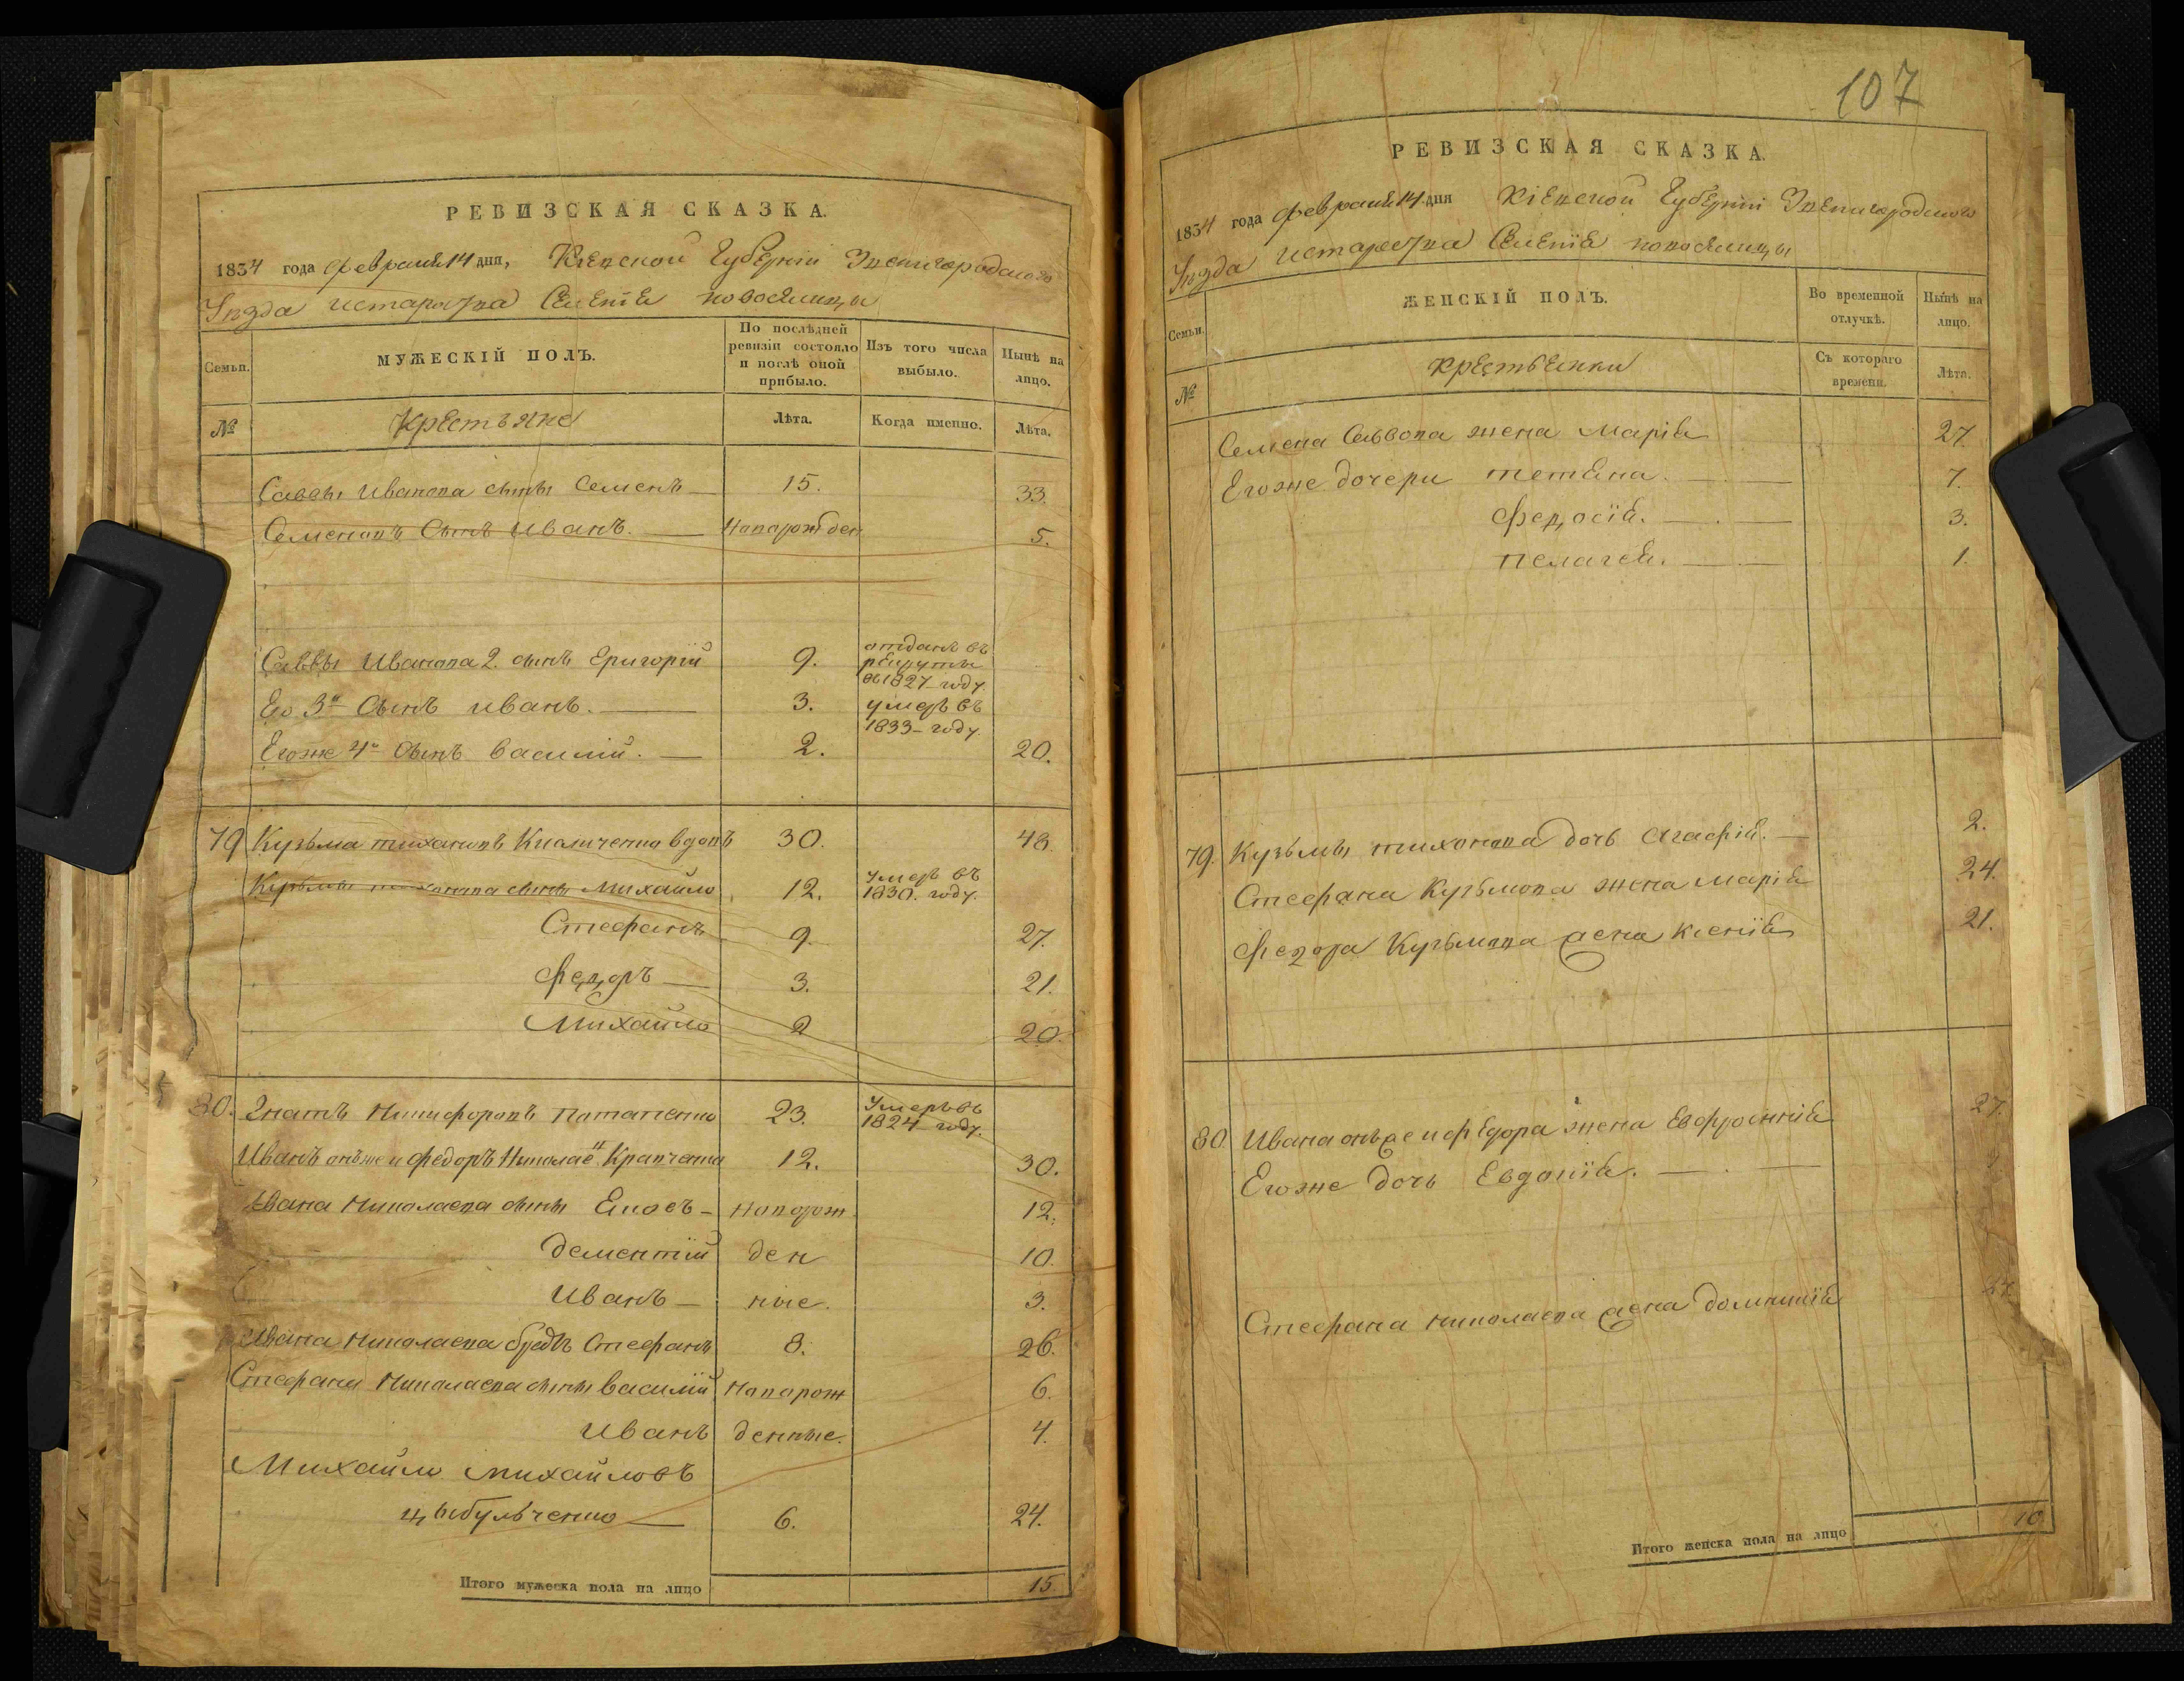 РЕВИЗСКАЯ СКАЗКА.
1834 года февраля 14 дня, Кіевской Губерніи Звенигородского
Уѣзда Староства Селенія Новоселицы
Семьи.
МУЖЕСКІЙ ПОЛЪ.
По послѣдней ревизіи состояло и послѣ оной прибыло.
Изъ того числа выбыло.
Нынѣ на лицо.
№
Крестьяне
Лѣта.
Когда именно.
Лѣта.
Саввы Иванова сынъ Семенъ 15. 33.
Семеновъ Сынъ Иванъ. Новорожден 5.
Саввы Иванова 2. сынъ Григорій 9. отданъ въ рекруты въ 1827 году.
Его 3й Сынъ Иванъ. 3. умеръ въ 1833 году.
Его же 4й Сынъ Василій. 2. 20.
79 Кузьма Тихоновъ вдовъ 30. 48.
Кузьмы Тихонова сыны Михайло 12. Умеръ въ 1830. году.
Стефанъ 9. 27.
Федоръ 3. 21.
Михайло 2 20.
80. Игнатъ Никифоровъ Потапенко 23. Умеръ въ 1824 году.
Иванъ онъ же и Федоръ Николаев 12. 30.
Ивана Николаева сыны новорож 12.
Дементій ден 10.
Иванъ ные. 3.
Ивана Николаева братъ Стефанъ 8. 26.
Стефана Николаева сыны Василій Новорож 6.
Иванъ денные. 4.
Михайло Михайловъ
Цыбульченко 6. 24.
Итого мужеска пола на лицо 15.
107
РЕВИЗСКАЯ СКАЗКА.
1834 года февраля 14 дня Кіевской Губерніи Звенигородского
Уѣзда Староства Селенія Новоселицы
Семьи.
ЖЕНСКІЙ ПОЛЪ.
Во временной отлучкѣ.
Нынѣ на лицо.
№
Крестьянки
Съ котораго времени.
Лѣта.
Семена Саввова жена Марія 27.
Его же дочери Тетяна. 7.
Федосія. 3.
Пелагея. 1.
79. Кузьмы Тихонова дочь Агафія. 2.
Стефана Кузьмова жена Марія 24.
Федора Кузьмова жена Ксенія 21.
80. Ивана онъ же и Федора жена Евфросинія 27.
Его же дочь Евдокія.
Стефана Николаева жена Домникія
Итого женска пола на лицо 10.